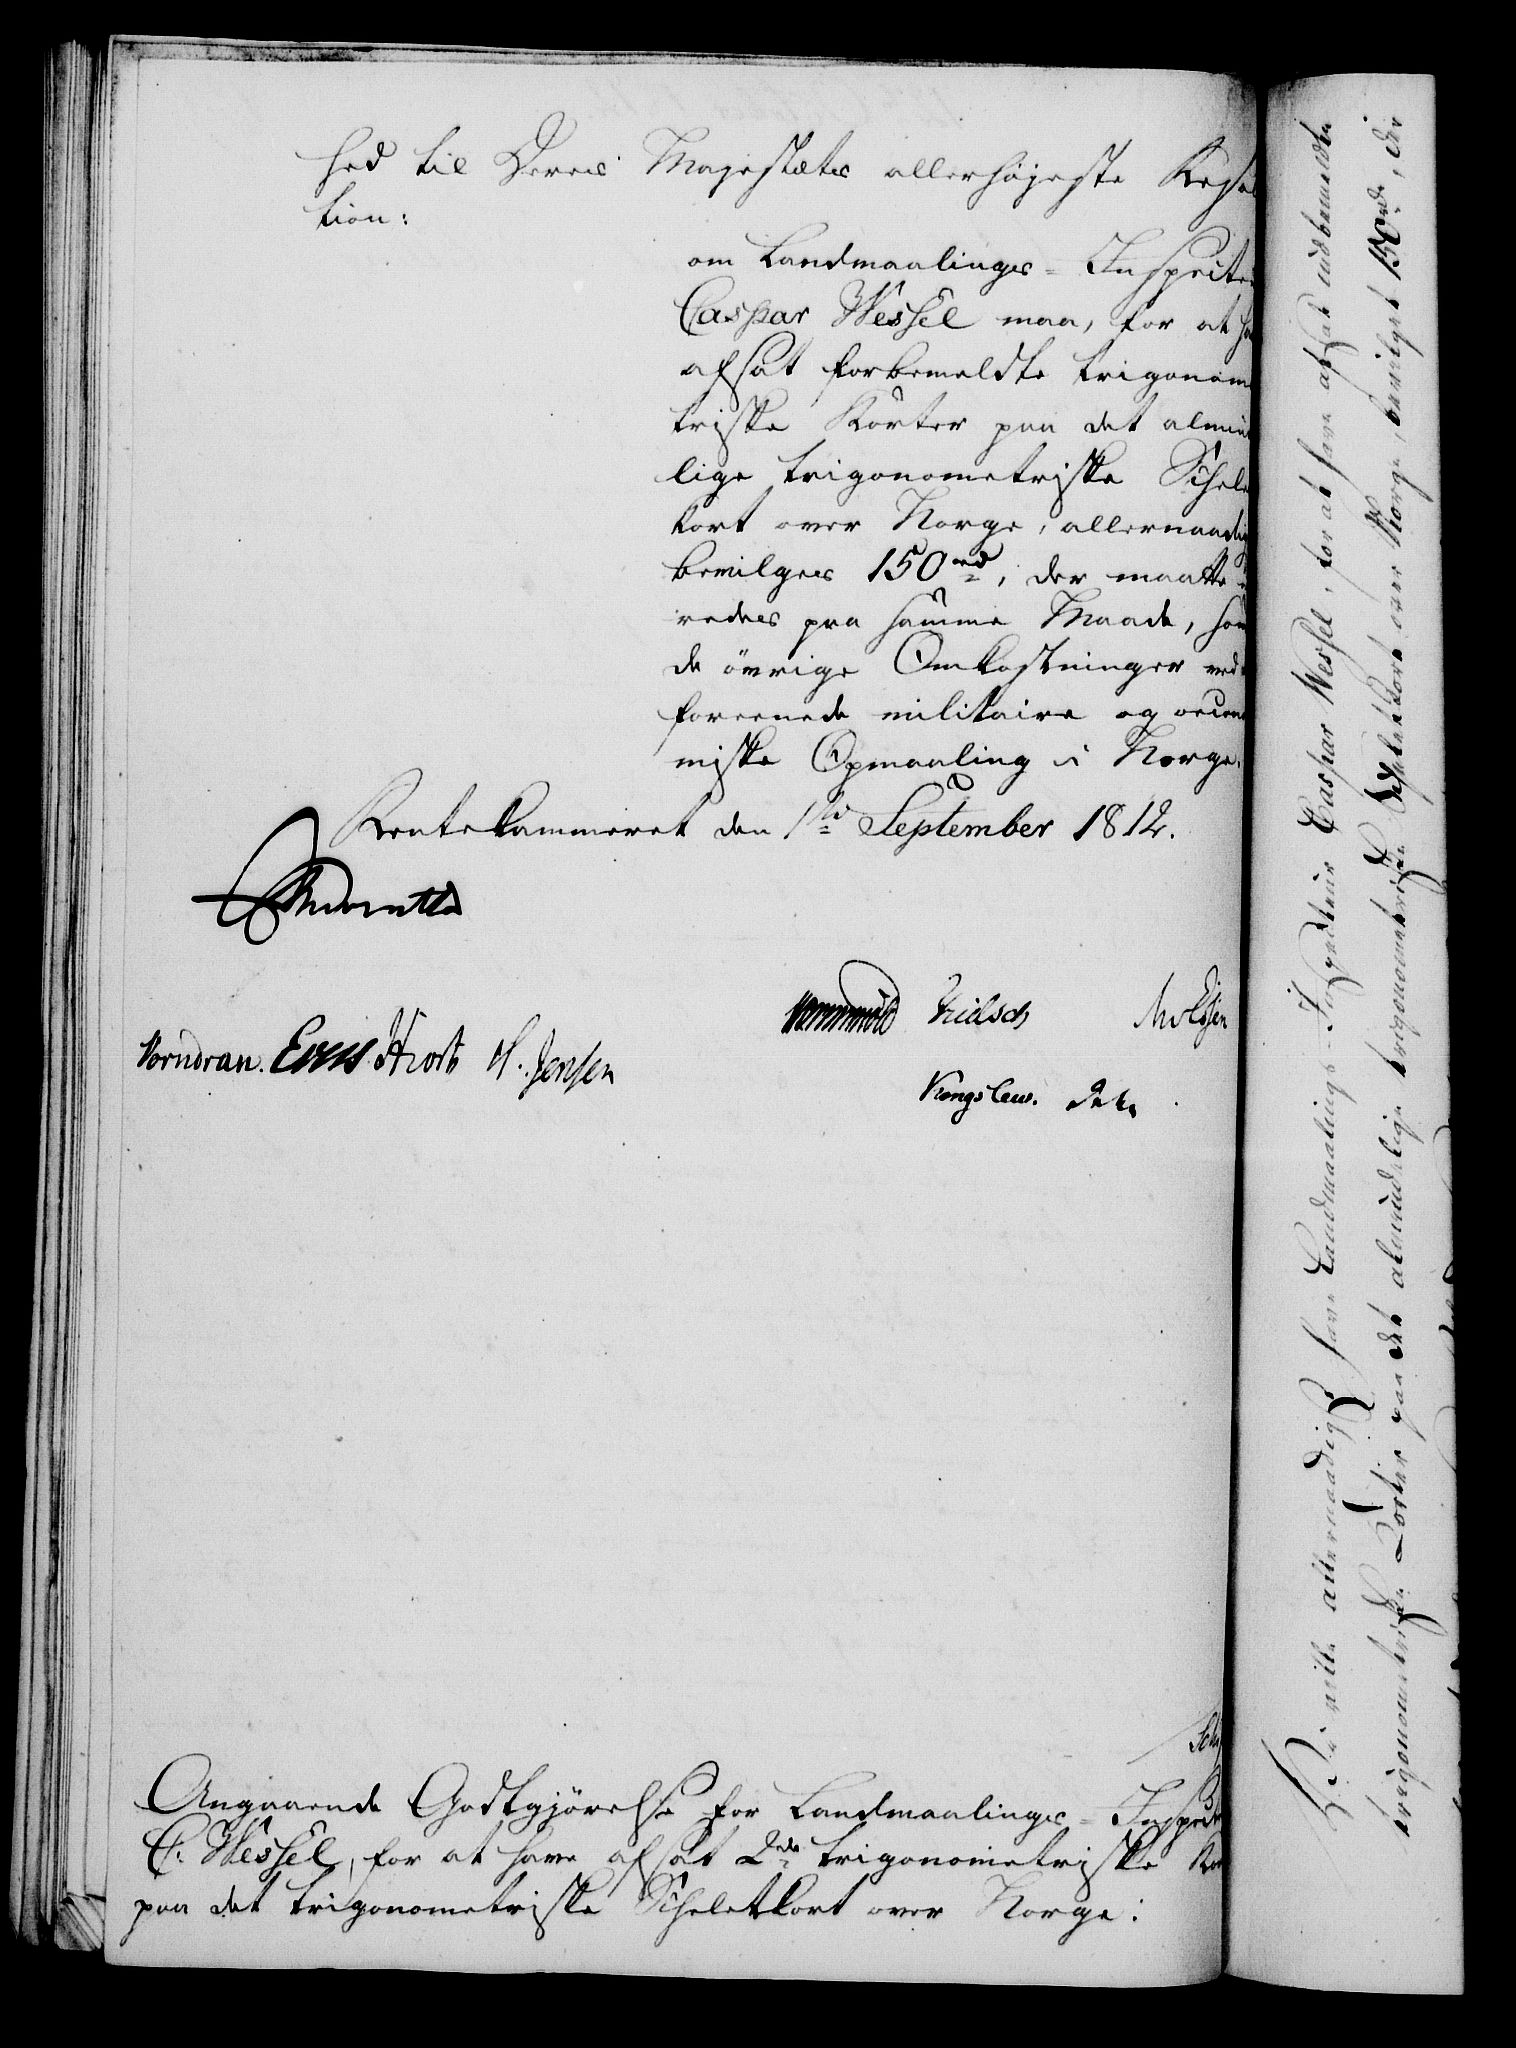 hed til Deres Majestæts allerhøjeste Resol
tion:
om Landmaalings-Inspecteu
Caspar Wessel maa, for at ha
afsat forbemeldte trigonome
triske Korter paa det almind
lige trigonometriske Schelet
kort over Norge, allernaadigst
bevilges 150 rd, der maatte
redes paa samme Maade, som
de övrige Omkostninger ved
foreenede militaire og oecono
miske Opmaaling i Norge.
Rentekammeret den 1ste September 1812.
Vorndran. Hiort H. Jensen
Kongslew.
Angaaende Godtgjörelse for Landmaalings-Inspecteu
C. Wessel, for at have afsat 2de trigonometriske Kor
paa det trigonometriske Scheletkort over Norge:
Vi ville allernaadigst have Landmaalings-Inspecteur Caspar Wessel, for at have afsat indbemeldte
trigonometriske Korter paa det almindelige trigonometriske Scheletkort over Norge, bevilget 150 rd, der